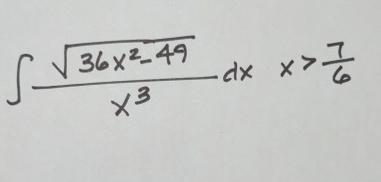 ∫ √(36x²-49) / x³ dx x > 7/6